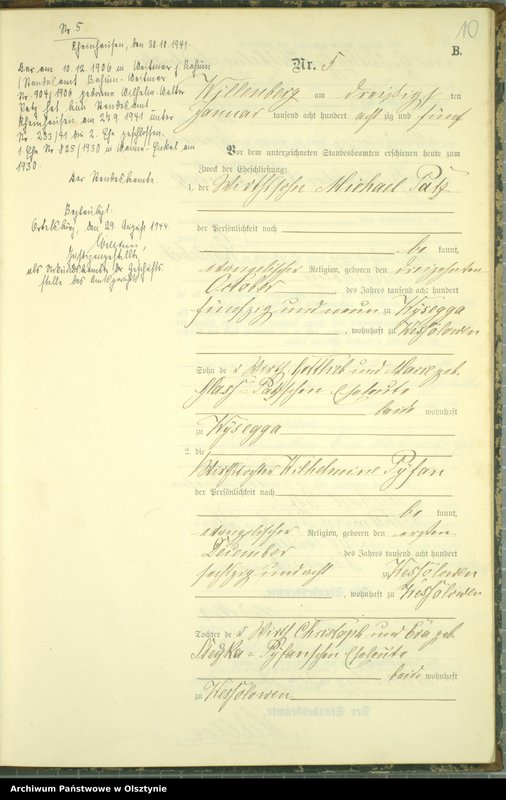 10
B.
Nr. 5
Rheinhausen, den 30.10.1941.
Der am 10.12.1906 in Weitmar j. Bochum
(Standesamt Bochum-Weitmar
Nr. 904/1906 geborene Wilhelm Walter
Patz hat beim Standesamt
Rheinhausen am 24.9.1941 unter
Nr. 233/41 die 2. Ehe geschlossen.
1. Ehe Nr 825/1930 in Wanne-Eickel am
1930.
Der Standesbeamte.
Beglaubigt:
Ortelsburg, den 29. August 1944
Justizangestellte,
als Urkundsbeamter der Geschäfts-
stelle des Amtsgerichts
Nr. 5
Willenberg am dreißigsten
Januar tausend acht hundert achtzig und fünf
Vor dem unterzeichneten Standesbeamten erschienen heute zum
Zweck der Eheschließung:
1. der Wirthssohn Michael Patz
der Persönlichkeit nach
be kannt,
evangelischer Religion, geboren den dreizehnten
October des Jahres tausend acht hundert
fünfzig und neun zu Wysegga
, wohnhaft zu Kessolowen
Sohn der Wirth Gottlieb und Marie geb.
Patzschen Eheleute
beide wohnhaft
zu Wysegga
2. die
Wirthstochter Wilhelmine Pysan
der Persönlichkeit nach
be kannt,
evangelischer Religion, geboren den ersten
December des Jahres tausend acht hundert
sechszig und acht zu Kessolowen
, wohnhaft zu Kessolowen
Tochter der Wirth Christoph und Eva geb.
Pysanschen Eheleute
beide wohnhaft
zu Kessolowen
Archiwum Państwowe w Olsztynie